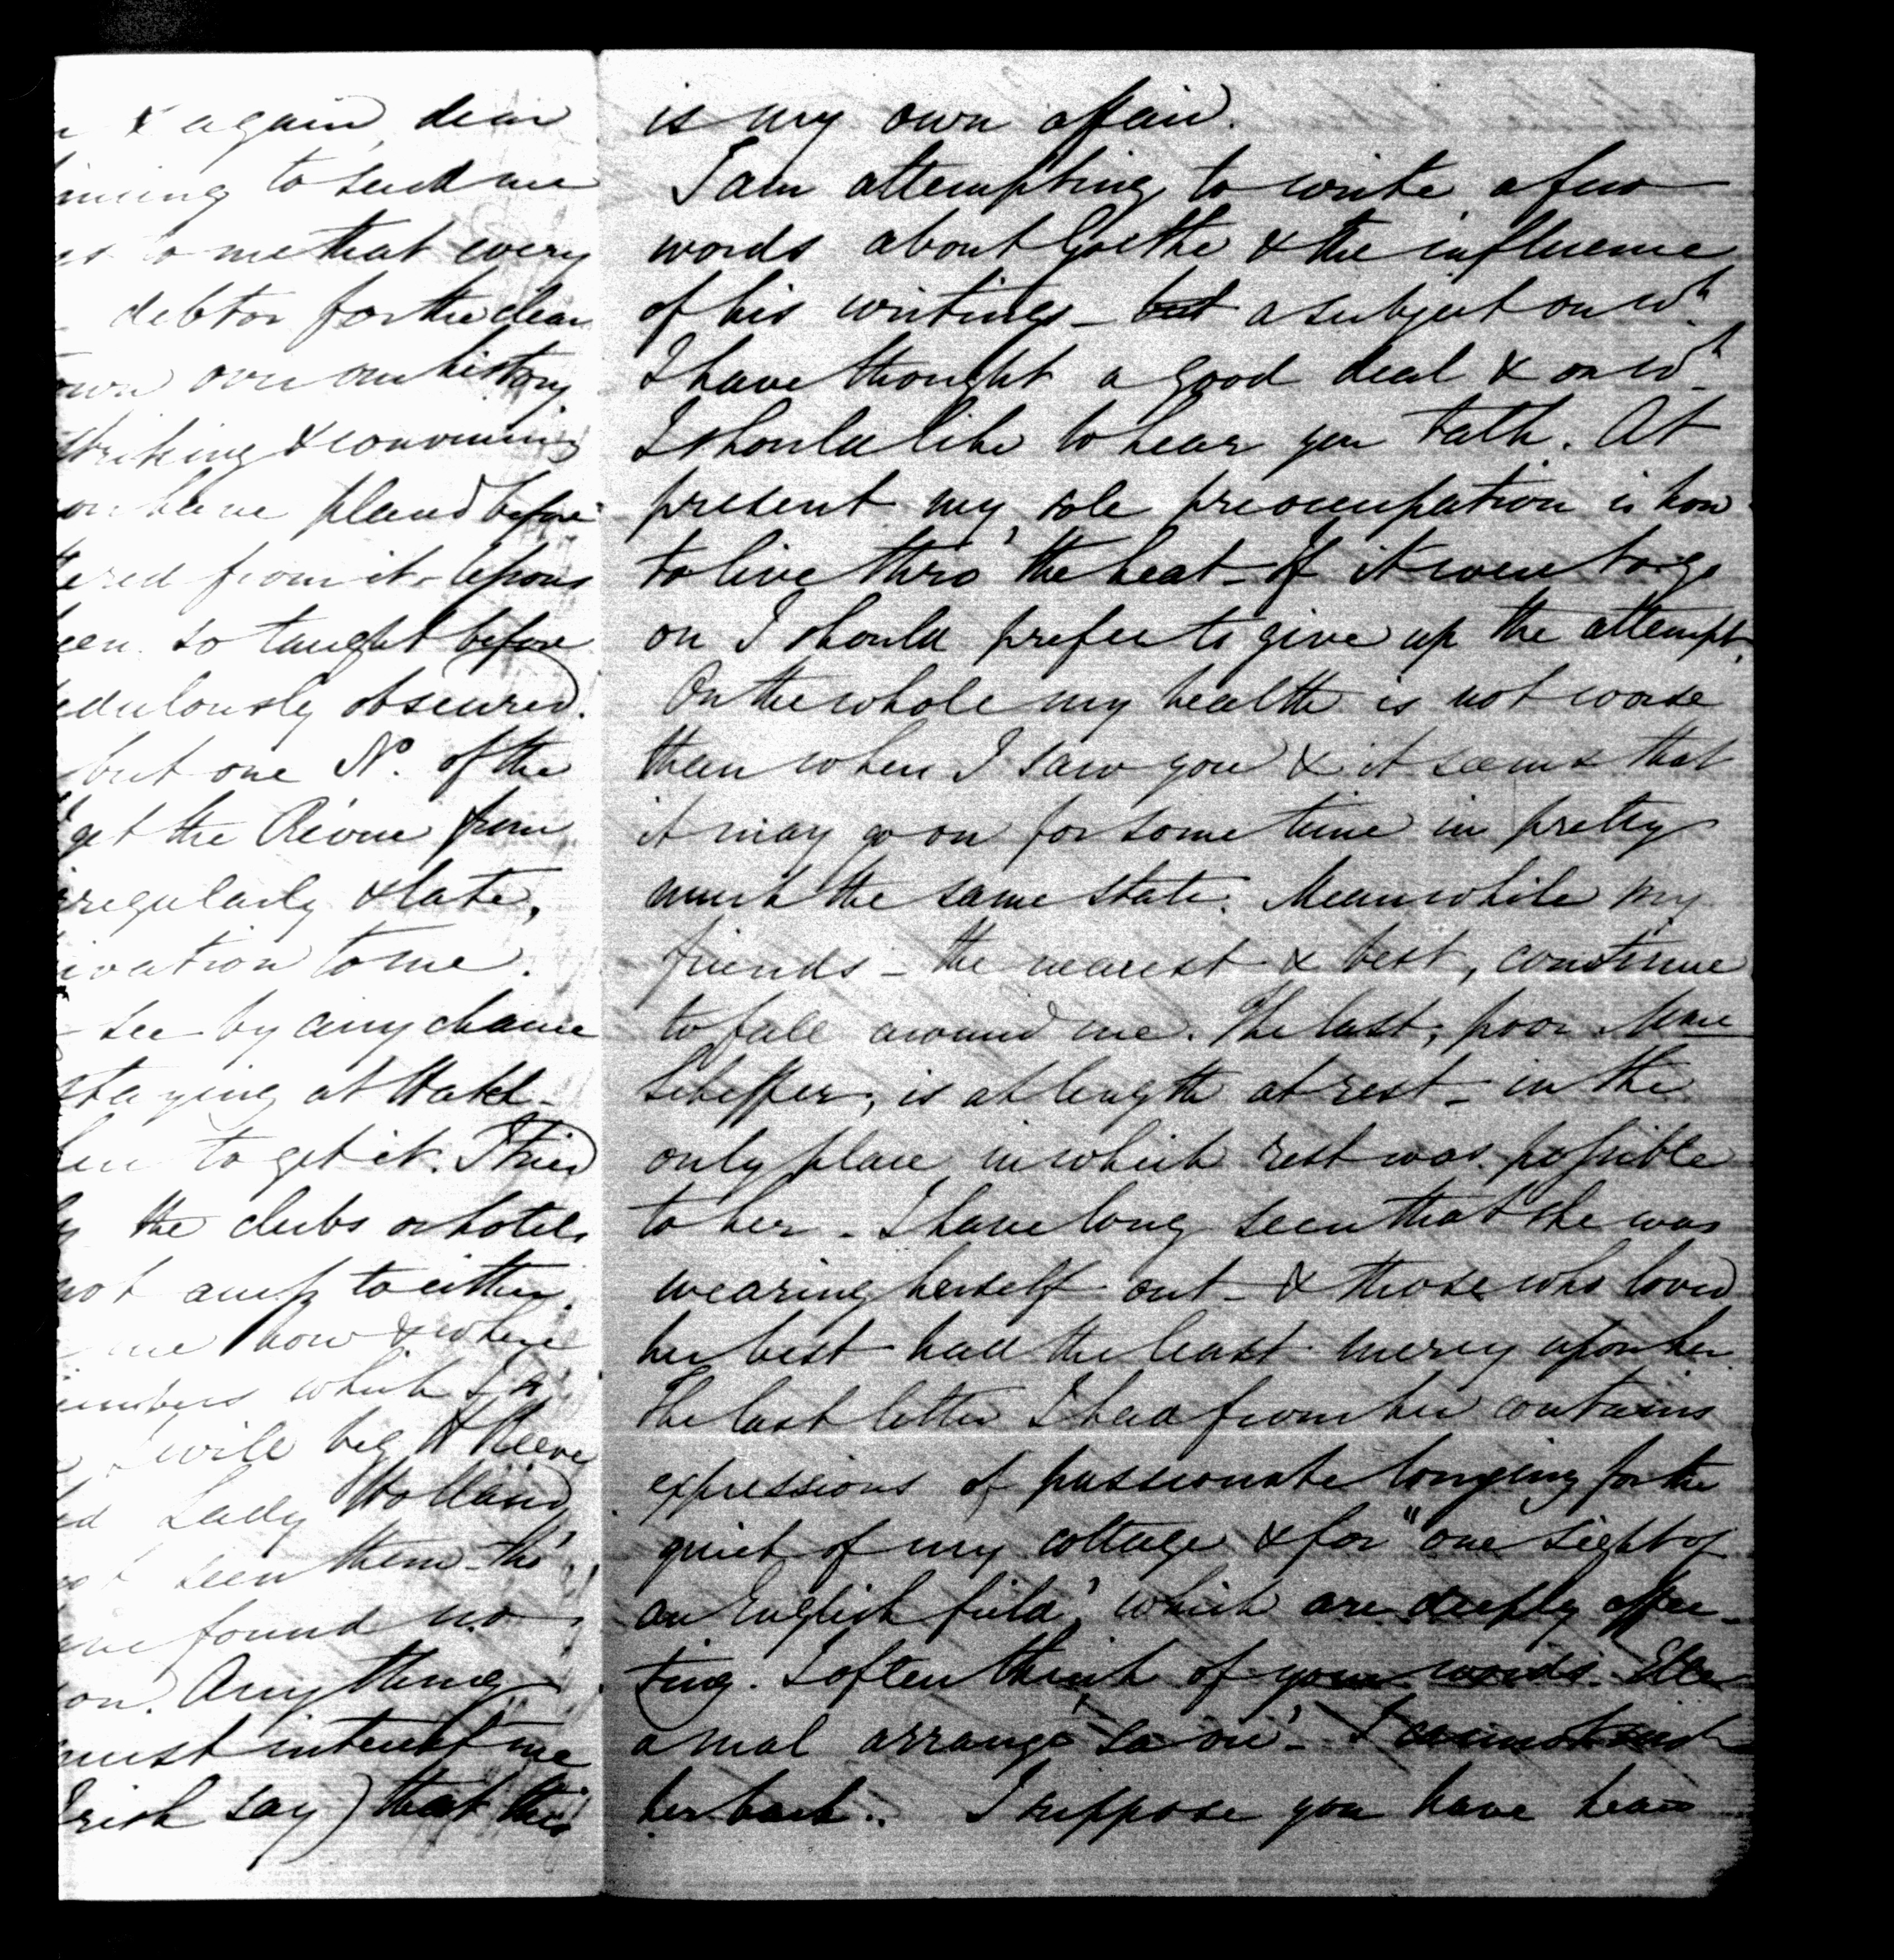 & again, dear
to send me
to me that every
debtor for the clear
over our history
striking & convincing
have placed before
from it - lepous
so taught before
obscured.
but one No. of the
get the Revue from
irregularly & late,
to me.
see by any chance
staying at Hatel-
to get it. I tried
the clubs or hotels
not away to either
me how & where
which I
I will beg H Reeve
Lady Holland
seen them - tho'
found no
Anything
must interest me
Irish say) that this
is my own affair.
I am attempting to write a few
words about Goethe & the influence
of his writings - but a subject on wh
I have thought a good deal & on wh
I should like to hear you talk. At
present my sole preoccupation is how
to live thro' the heat - If it were to go
on I should prefer to give up the attempt.
On the whole my health is not worse
than when I saw you & it seems that
it may go on for some time in pretty
much the same state. Meanwhile my
friends - the nearest & best, continue
to fall around me. The last, poor Mme
Scheffer, is at length at rest - in the
only place in which rest was possible
to her - I have long seen that she was
wearing herself out - & those who loved
her best had the least mercy upon her.
The last letter I had from her contains
expressions of passionate longing for the
quiet of my cottage & for "one sight of
an English field", which are deeply affec-
ting. I often think of your words. Elle
a mal arrangé sa vie' - I cannot wish
her back. I suppose you have heard